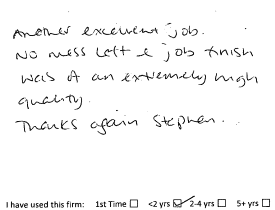 Another excellent job.
No mess left & job finish
was of an extremely high
quality.
Thanks again Stephen.
I have used this firm: 1st Time ☐ <2 yrs ☑ 2-4 yrs ☐ 5+ yrs ☐